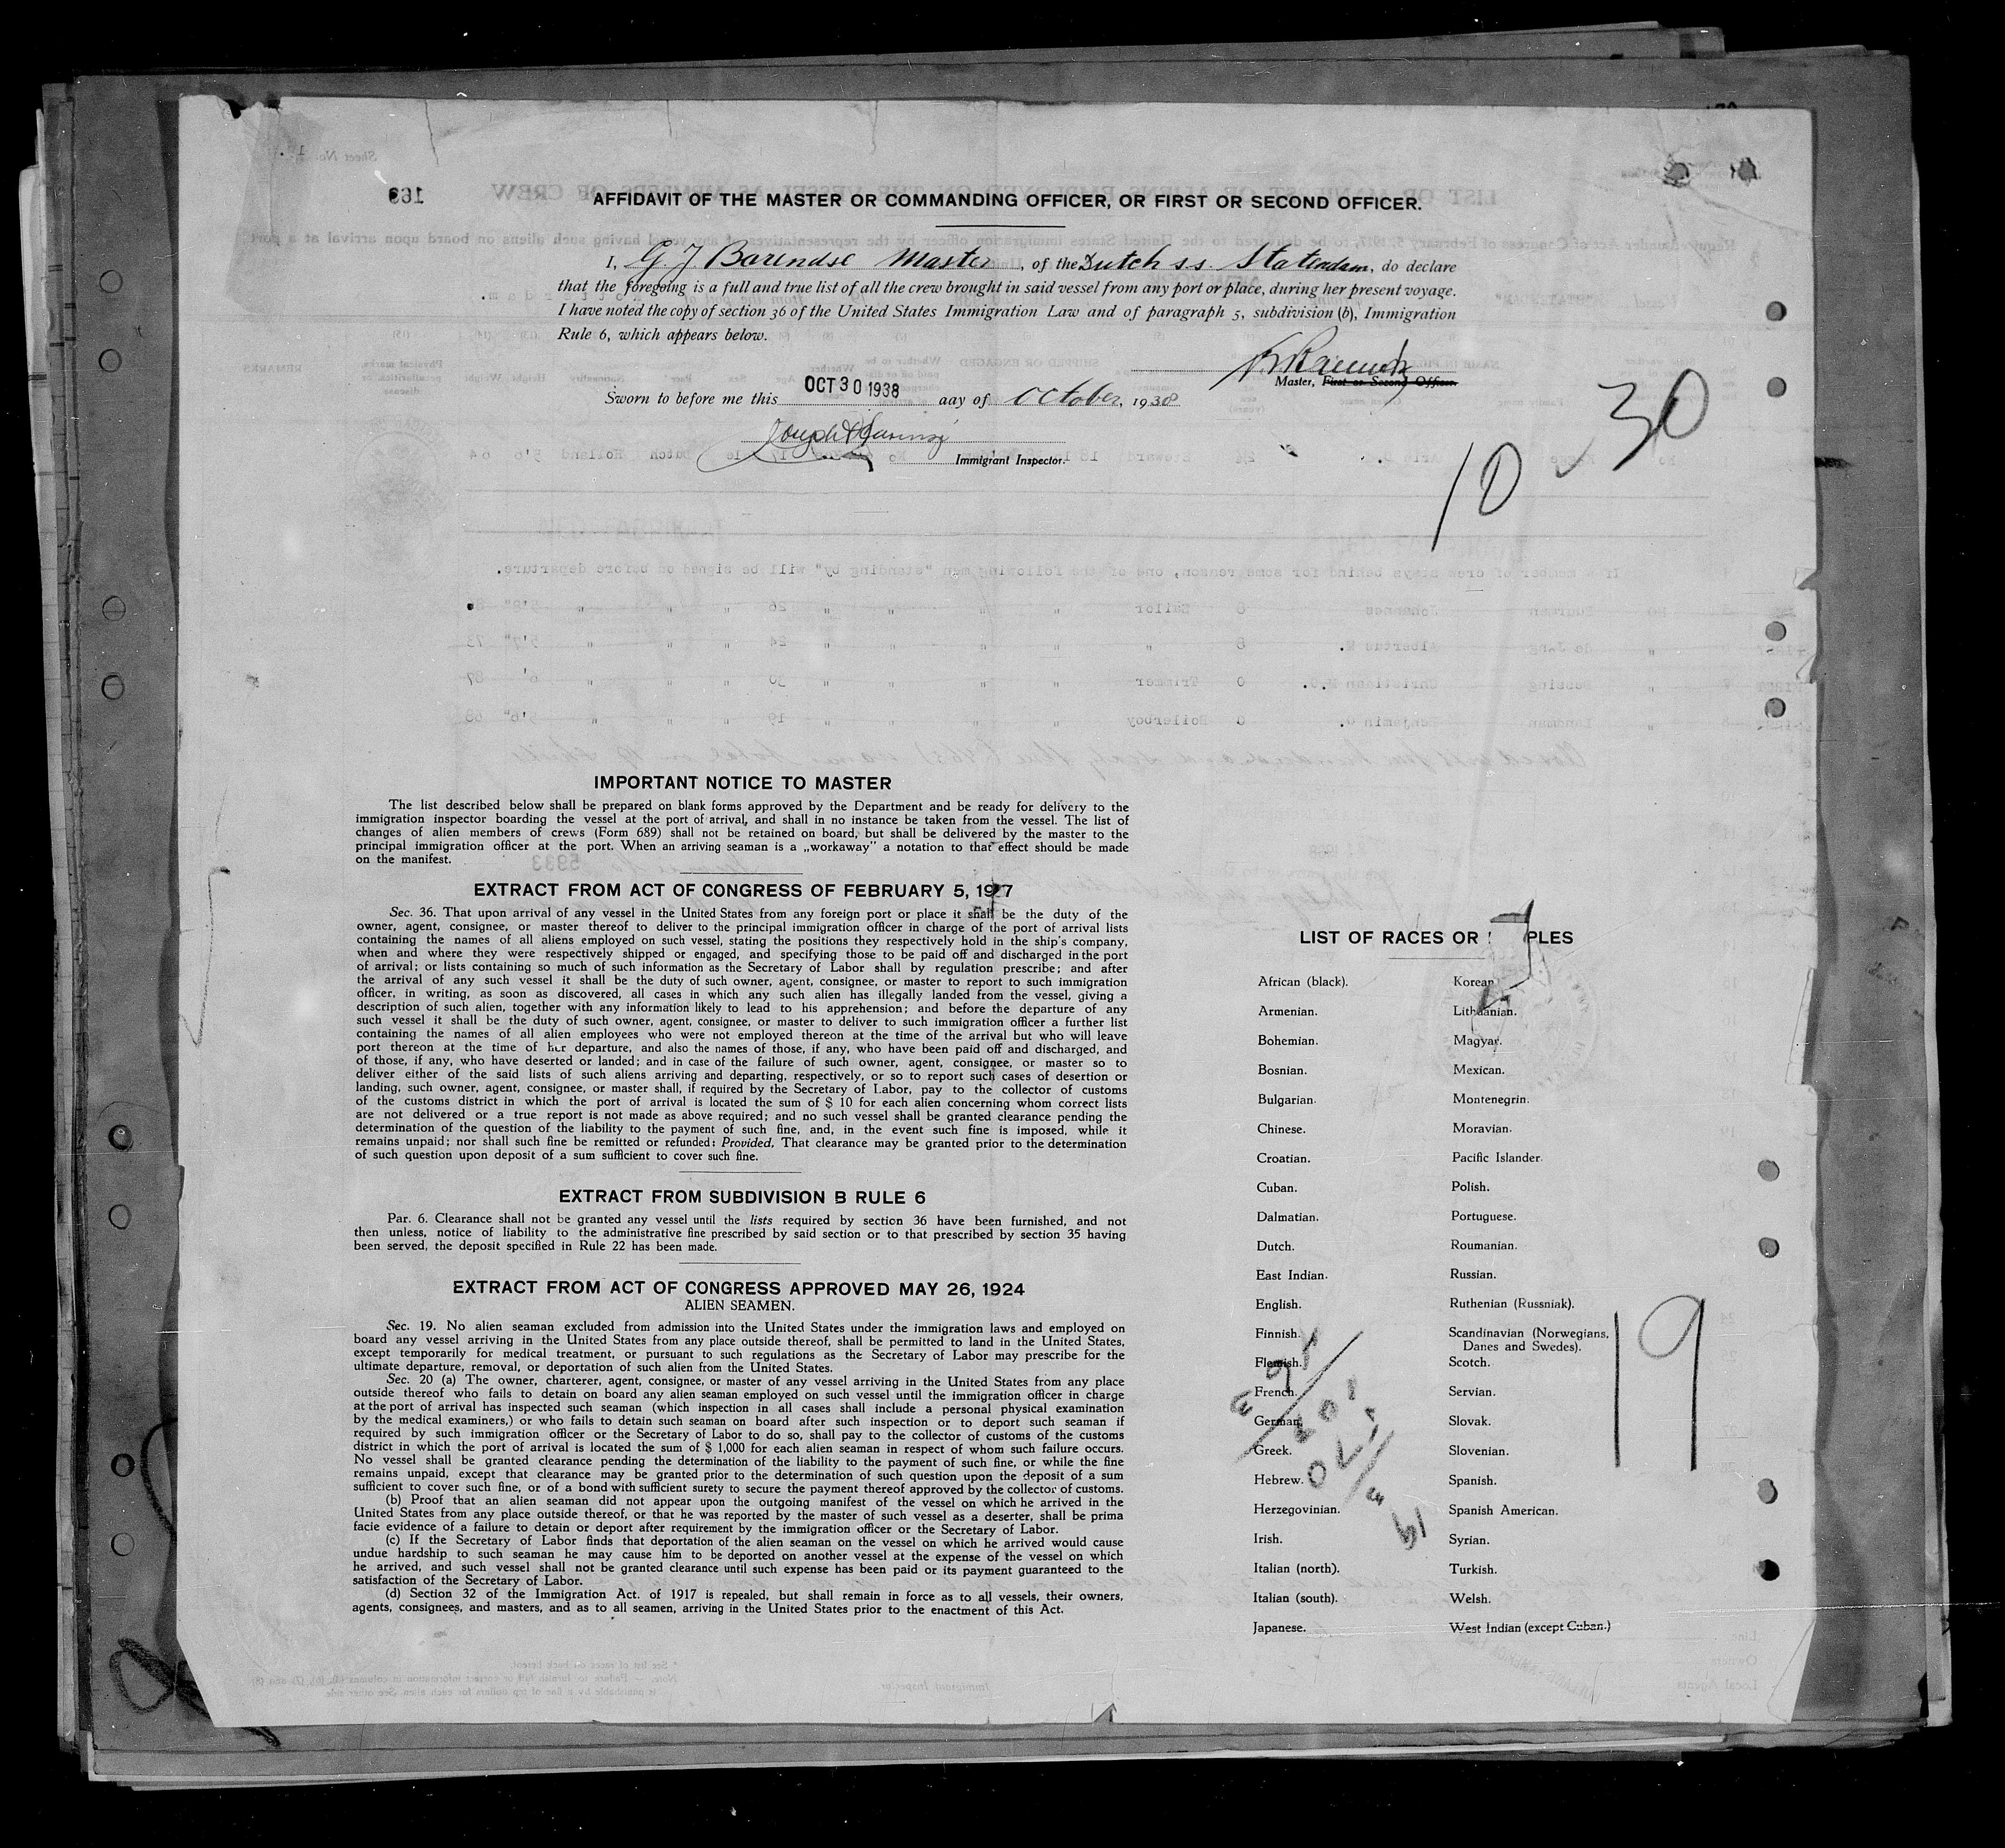 AFFIDAVIT OF THE MASTER OR COMMANDING OFFICER, OR FIRST OR SECOND OFFICER.
I, G. J. Barendse Master, of the Dutch ss. Statendam, do declare
that the foregoing is a full and true list of all the crew brought in said vessel from any port or place, during her present voyage.
I have noted the copy of section 36 of the United States Immigration Law and of paragraph 5, subdivision (b), Immigration
Rule 6, which appears below.
Master, First or Second Officer.
Sworn to before me this OCT 30 1938 day of October, 1938
Immigrant Inspector.
10-30
IMPORTANT NOTICE TO MASTER
The list described below shall be prepared on blank forms approved by the Department and be ready for delivery to the
immigration inspector boarding the vessel at the port of arrival, and shall in no instance be taken from the vessel. The list of
changes of alien members of crews (Form 689) shall not be retained on board, but shall be delivered by the master to the
principal immigration officer at the port. When an arriving seaman is a „workaway" a notation to that effect should be made
on the manifest.
EXTRACT FROM ACT OF CONGRESS OF FEBRUARY 5, 1917
Sec. 36. That upon arrival of any vessel in the United States from any foreign port or place it shall be the duty of the
owner, agent, consignee, or master thereof to deliver to the principal immigration officer in charge of the port of arrival lists
containing the names of all aliens employed on such vessel, stating the positions they respectively hold in the ship's company,
when and where they were respectively shipped or engaged, and specifying those to be paid off and discharged in the port
of arrival; or lists containing so much of such information as the Secretary of Labor shall by regulation prescribe; and after
the arrival of any such vessel it shall be the duty of such owner, agent, consignee, or master to report to such immigration
officer, in writing, as soon as discovered, all cases in which any such alien has illegally landed from the vessel, giving a
description of such alien, together with any information likely to lead to his apprehension; and before the departure of any
such vessel it shall be the duty of such owner, agent, consignee, or master to deliver to such immigration officer a further list
containing the names of all alien employees who were not employed thereon at the time of the arrival but who will leave
port thereon at the time of her departure, and also the names of those, if any, who have been paid off and discharged, and
of those, if any, who have deserted or landed; and in case of the failure of such owner, agent, consignee, or master so to
deliver either of the said lists of such aliens arriving and departing, respectively, or so to report such cases of desertion or
landing, such owner, agent, consignee, or master shall, if required by the Secretary of Labor, pay to the collector of customs
of the customs district in which the port of arrival is located the sum of $ 10 for each alien concerning whom correct lists
are not delivered or a true report is not made as above required; and no such vessel shall be granted clearance pending the
determination of the question of the liability to the payment of such fine, and, in the event such fine is imposed, while it
remains unpaid; nor shall such fine be remitted or refunded: Provided, That clearance may be granted prior to the determination
of such question upon deposit of a sum sufficient to cover such fine.
EXTRACT FROM SUBDIVISION B RULE 6
Par. 6. Clearance shall not be granted any vessel until the lists required by section 36 have been furnished, and not
then unless, notice of liability to the administrative fine prescribed by said section or to that prescribed by section 35 having
been served, the deposit specified in Rule 22 has been made.
EXTRACT FROM ACT OF CONGRESS APPROVED MAY 26, 1924
ALIEN SEAMEN.
Sec. 19. No alien seaman excluded from admission into the United States under the immigration laws and employed on
board any vessel arriving in the United States from any place outside thereof, shall be permitted to land in the United States,
except temporarily for medical treatment, or pursuant to such regulations as the Secretary of Labor may prescribe for the
ultimate departure, removal, or deportation of such alien from the United States.
Sec. 20 (a) The owner, charterer, agent, consignee, or master of any vessel arriving in the United States from any place
outside thereof who fails to detain on board any alien seaman employed on such vessel until the immigration officer in charge
at the port of arrival has inspected such seaman (which inspection in all cases shall include a personal physical examination
by the medical examiners,) or who fails to detain such seaman on board after such inspection or to deport such seaman if
required by such immigration officer or the Secretary of Labor to do so, shall pay to the collector of customs of the customs
district in which the port of arrival is located the sum of $ 1,000 for each alien seaman in respect of whom such failure occurs.
No vessel shall be granted clearance pending the determination of the liability to the payment of such fine, or while the fine
remains unpaid, except that clearance may be granted prior to the determination of such question upon the deposit of a sum
sufficient to cover such fine, or of a bond with sufficient surety to secure the payment thereof approved by the collector of customs.
(b) Proof that an alien seaman did not appear upon the outgoing manifest of the vessel on which he arrived in the
United States from any place outside thereof, or that he was reported by the master of such vessel as a deserter, shall be prima
facie evidence of a failure to detain or deport after requirement by the immigration officer or the Secretary of Labor.
(c) If the Secretary of Labor finds that deportation of the alien seaman on the vessel on which he arrived would cause
undue hardship to such seaman he may cause him to be deported on another vessel at the expense of the vessel on which
he arrived, and such vessel shall not be granted clearance until such expense has been paid or its payment guaranteed to the
satisfaction of the Secretary of Labor.
(d) Section 32 of the Immigration Act. of 1917 is repealed, but shall remain in force as to all vessels, their owners,
agents, consignees, and masters, and as to all seamen, arriving in the United States prior to the enactment of this Act.
LIST OF RACES OR PLES
African (black).
Armenian.
Bohemian.
Bosnian.
Bulgarian.
Chinese.
Croatian.
Cuban.
Dalmatian.
Dutch.
East Indian.
English.
Finnish.
Flemish.
French.
German.
Greek.
Hebrew.
Herzegovinian.
Irish.
Italian (north).
Italian (south).
Japanese.
Korean.
Lithuanian.
Magyar.
Mexican.
Montenegrin.
Moravian.
Pacific Islander.
Polish.
Portuguese.
Roumanian.
Russian.
Ruthenian (Russniak).
Scandinavian (Norwegians,
Danes and Swedes).
Scotch.
Servian.
Slovak.
Slovenian.
Spanish.
Spanish American.
Syrian.
Turkish.
Welsh.
West Indian (except Cuban.)
19